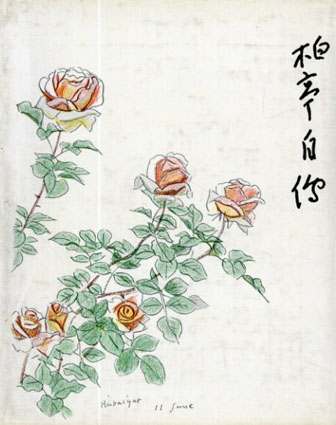 柏亭自傳
Rubaiyat 11 June